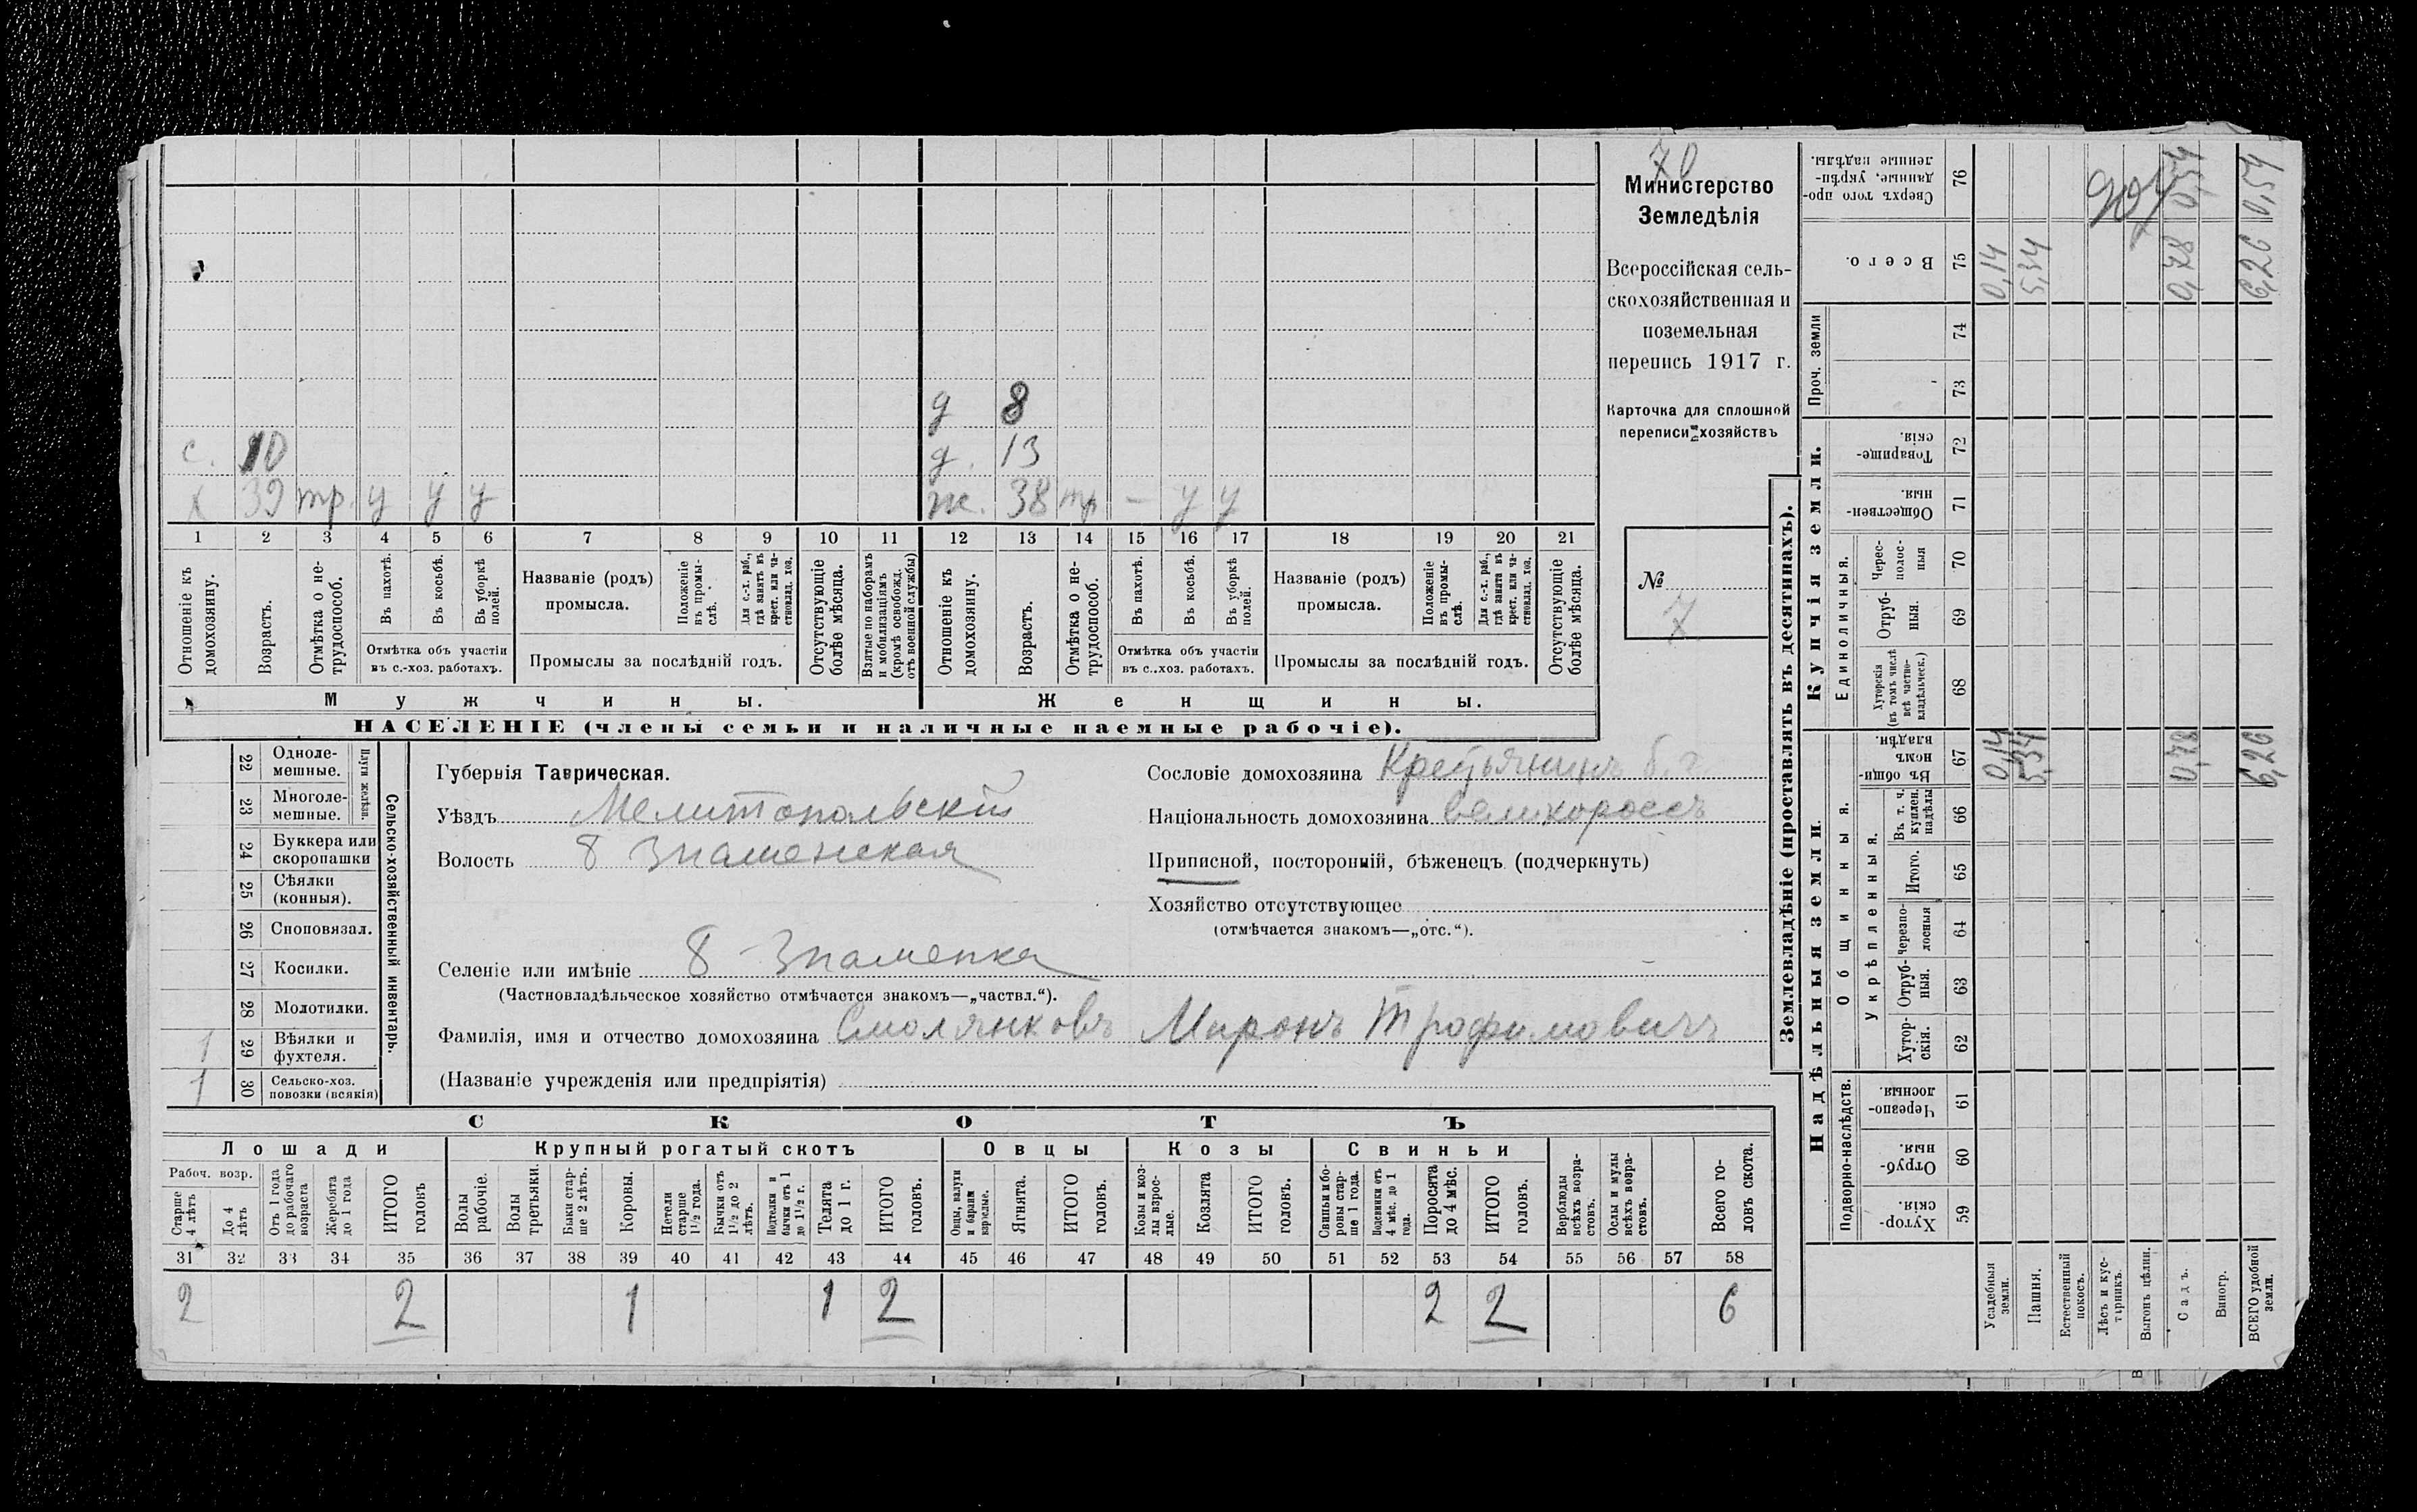 70
Министерство
Земледѣлія
Всероссійская сель-
скохозяйственная и
поземельная
перепись 1917 г.
Карточка для сплошной
переписи хозяйствъ
№
7
д 8
с. 10 д. 13
х 39 тр. у у у ж. 38 тр - у у
1 2 3 4 5 6 7 8 9 10 11 12 13 14 15 16 17 18 19 20 21
Отношеніе къ домохозяину.
Возрастъ.
Отмѣтка о не-трудоспособ.
Въ пахотѣ.
Въ косьбѣ.
Въ уборкѣ полей.
Отмѣтка объ участіи
въ с.-хоз. работахъ.
Названіе (родъ)
промысла.
Положеніе въ промы-слѣ.
Для с.-х. раб., гдѣ занятъ въ крест. или ча-стновлад. хоз.
Промыслы за послѣдній годъ.
Отсутствующіе болѣе мѣсяца.
Взятые по наборамъ и мобилизаціямъ (кромѣ освобожд. отъ военной службы)
Отношеніе къ домохозяину.
Возрастъ.
Отмѣтка о не-трудоспособ.
Въ пахотѣ.
Въ косьбѣ.
Въ уборкѣ полей.
Отмѣтка объ участіи
въ с.-хоз. работахъ.
Названіе (родъ)
промысла.
Положеніе въ промы-слѣ.
Для с.-х. раб., гдѣ занята въ крест. или ча-стновлад. хоз.
Промыслы за послѣдній годъ.
Отсутствующіе болѣе мѣсяца.
Мужчины. Женщины.
НАСЕЛЕНІЕ (члены семьи и наличные наемные рабочіе).
22 Одноле-мешные.
23 Многоле-мешные.
Плуги желѣзн.
24 Буккера или скоропашки
25 Сѣялки (конныя).
26 Сноповязал.
27 Косилки.
28 Молотилки.
1 29 Вѣялки и фухтеля.
1 30 Сельско-хоз. повозки (всякія)
Сельско-хозяйственный инвентарь.
Губернія Таврическая.
Уѣздъ Мелитопольскій
Волость Б Знаменская
Селеніе или имѣніе Б Знаменка
(Частновладѣльческое хозяйство отмѣчается знакомъ—„частвл.“).
Сословіе домохозяина Крестьянинъ б. г.
Національность домохозяина великороссъ
Приписной, посторонній, бѣженецъ (подчеркнуть)
Хозяйство отсутствующее
(отмѣчается знакомъ—„отс.“).
Фамилія, имя и отчество домохозяина Смолянковъ Миронъ Трофимовичъ
(Названіе учрежденія или предпріятія)
СКОТЪ
Лошади Крупный рогатый скотъ Овцы Козы Свиньи
Рабоч. возр.
Старше 4 лѣтъ
До 4 лѣтъ
Отъ 1 года до рабочаго возраста
Жеребята до 1 года
ИТОГО головъ
Волы рабочіе.
Волы третьяки.
Быки стар-ше 2 лѣтъ.
Коровы.
Нетели старше 1½ года.
Бычки отъ 1½ до 2 лѣтъ.
Подтелки и бычки отъ 1 до 1½ г.
Телята до 1 г.
ИТОГО головъ.
Овцы, валухи и бараны взрослые.
Ягнята.
ИТОГО головъ.
Козы и коз-лы взрос-лые.
Козлята
ИТОГО головъ.
Свиньи и бо-ровы стар-ше 1 года.
Подсвинки отъ 4 мѣс. до 1 года.
Поросята до 4 мѣс.
ИТОГО головъ.
Верблюды всѣхъ возра-стовъ.
Ослы и мулы всѣхъ возра-стовъ.
Всего го-ловъ скота.
31 32 33 34 35 36 37 38 39 40 41 42 43 44 45 46 47 48 49 50 51 52 53 54 55 56 57 58
2 2 1 1 2 2 2 6
Землевладѣніе (проставлять въ десятинахъ).
Надѣльныя земли. Купчія земли. Проч. земли
Подворно-наслѣдств. Общинныя. Единоличныя.
Укрѣпленныя.
Хутор-скія. 59
Отруб-ныя. 60
Черезпо-лосныя 61
Хутор-скія. 62
Отруб-ныя. 63
Черезпо-лосныя 64
Итого. 65
Въ т. ч. куплен. надѣлы 66
Въ общин-номъ владѣн. 67
Хуторскія (въ томъ числѣ всѣ частно-владѣльческ.) 68
Отруб-ныя. 69
Черес-полос-ныя 70
Обществен-ныя. 71
Товарище-скія. 72
73
74
Всего. 75
Сверхъ того про-данные, укрѣп-ленные надѣлы. 76
Усадебныя земли. 0,14 0,14
Пашня. 5,34 5,34
Естественный покосъ.
Лѣсъ и кус-тарникъ.
Выгонъ цѣлин.
Садъ. 0,78 0,78 0,54
Виногр.
ВСЕГО удобной земли. 6,26 6,26 0,54